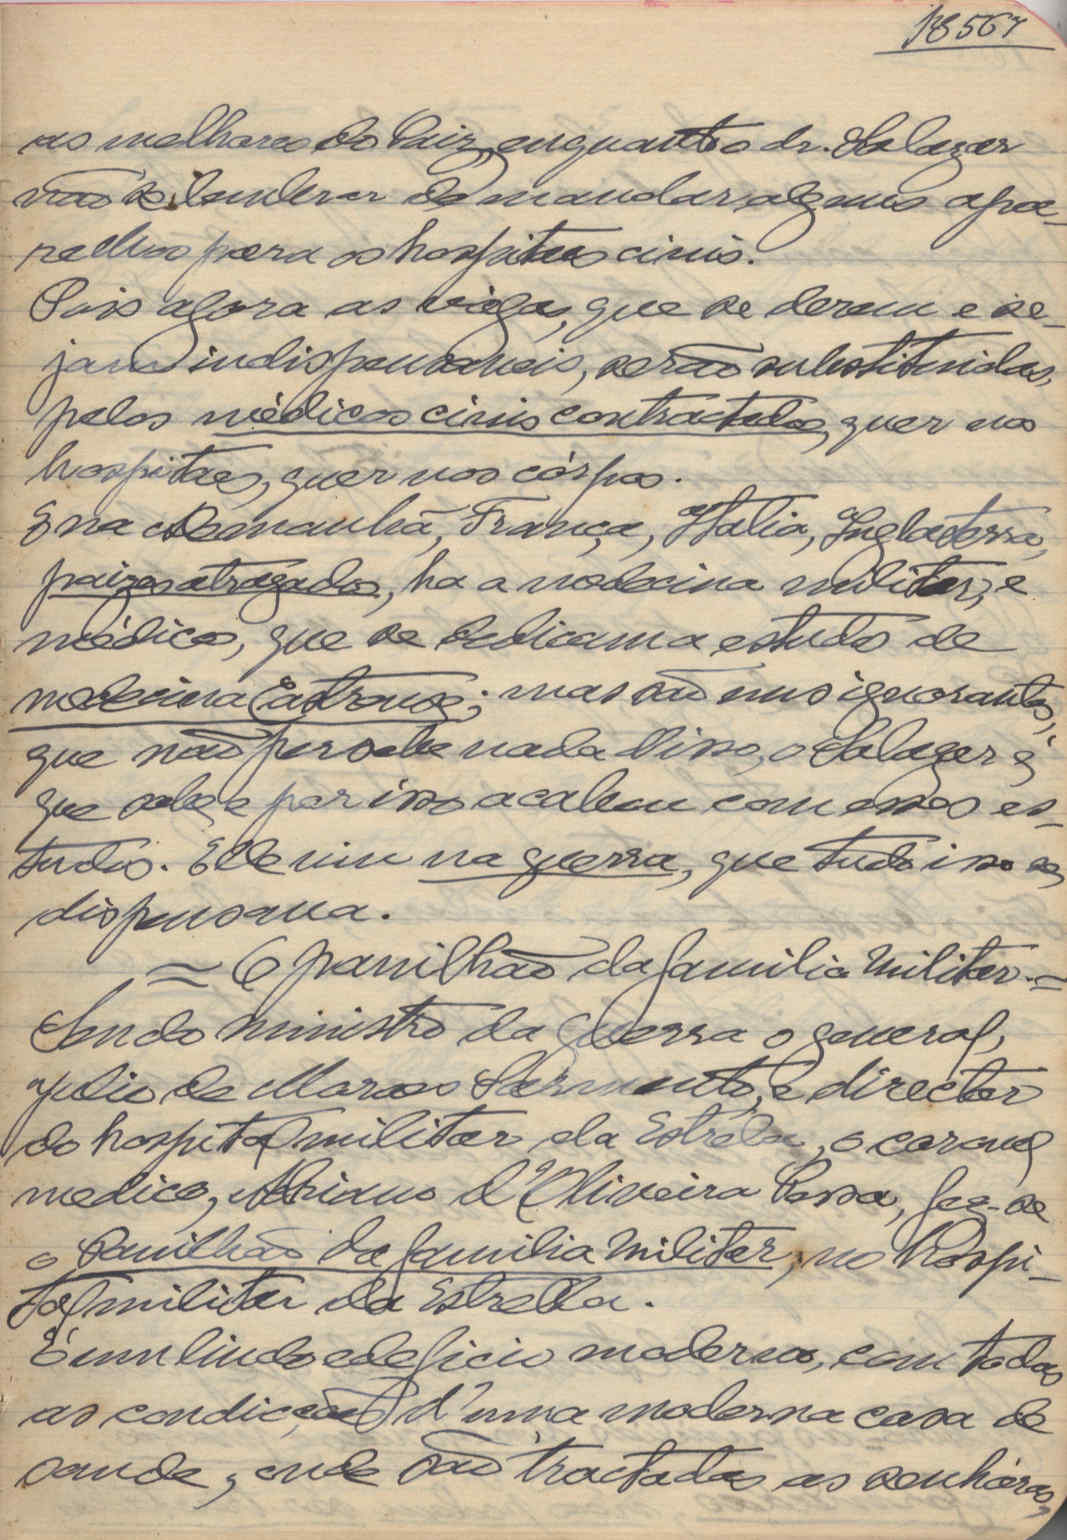 18567
as melhores do Paiz, enquanto o dr. Salazar
não se lembrar de mandar alguns apa-
relhos para os hospitaes civis.
Pois agora as vagas, que se derem e se-
jam indispensaveis, serão substituidas,
pelos médicos civis contractados, quer nos
hospitaes, quer nos córpos.
E na Alemanhã, França, Italia, Inglaterra,
paizes atrazados, ha a medecina militar, e
médicos, que se dedicam a estudo de
medecina Castrense; mas são uns ignorantes,
que não percebe nada d'isso, o Salazar é
que sabe, e por isso acabou com esses es-
tudos. Elle viu na guerra, que tudo isso se
dispensava.
= O pavilhão da familia Militar. =
Sendo ministro da Guerra o general,
Julio de Moraes Sarmento, e director
do hospital militar da Estrela, o coronel
medico, Adriano d'Oliveira Pessa, fez-se
o Pavilhão da familia Militar, no Hospi-
tal militar da Estrella.
É um lindo edeficio moderno, com todas
as condicções d'uma moderna casa de
saude, onde são tractadas as senhóras,